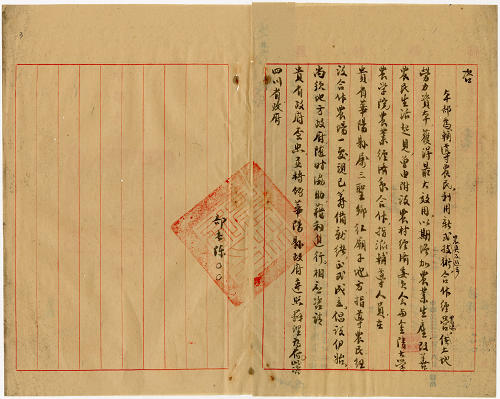 咨
本部為輔導農民利用新式技術合作經營俾土地
農具
勞力資本獲得最大效用以期增加農業生產改善
農民生活起見曾由附設農村經濟委員會與金陵大學
農學院農業經濟系合作指派輔導人員在
貴省華陽縣屬三聖鄉紅廟子地方指導農民組
設合作農場一處現已籌備就緒正式成立倡設伊始
尚須地方政府隨時協助藉利進行相應咨請
貴省政府查照並轉飭華陽縣政府遵照辦理為荷此咨
四川省政府
部長陳〇〇
3